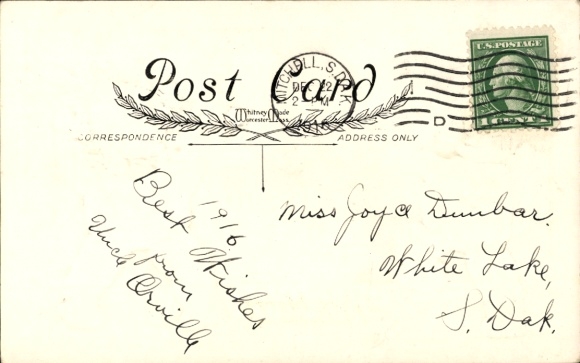 Post Card
Whitney Made
Worcester, Mass.
CORRESPONDENCE
ADDRESS ONLY
MITCHELL, S. DAK.
DEC 22
2 PM
1916
D
U.S. POSTAGE
1 CENT 1
1916
Best Wishes
from
Uncle Orville
Miss Joyce Dunbar.
White Lake,
S. Dak.